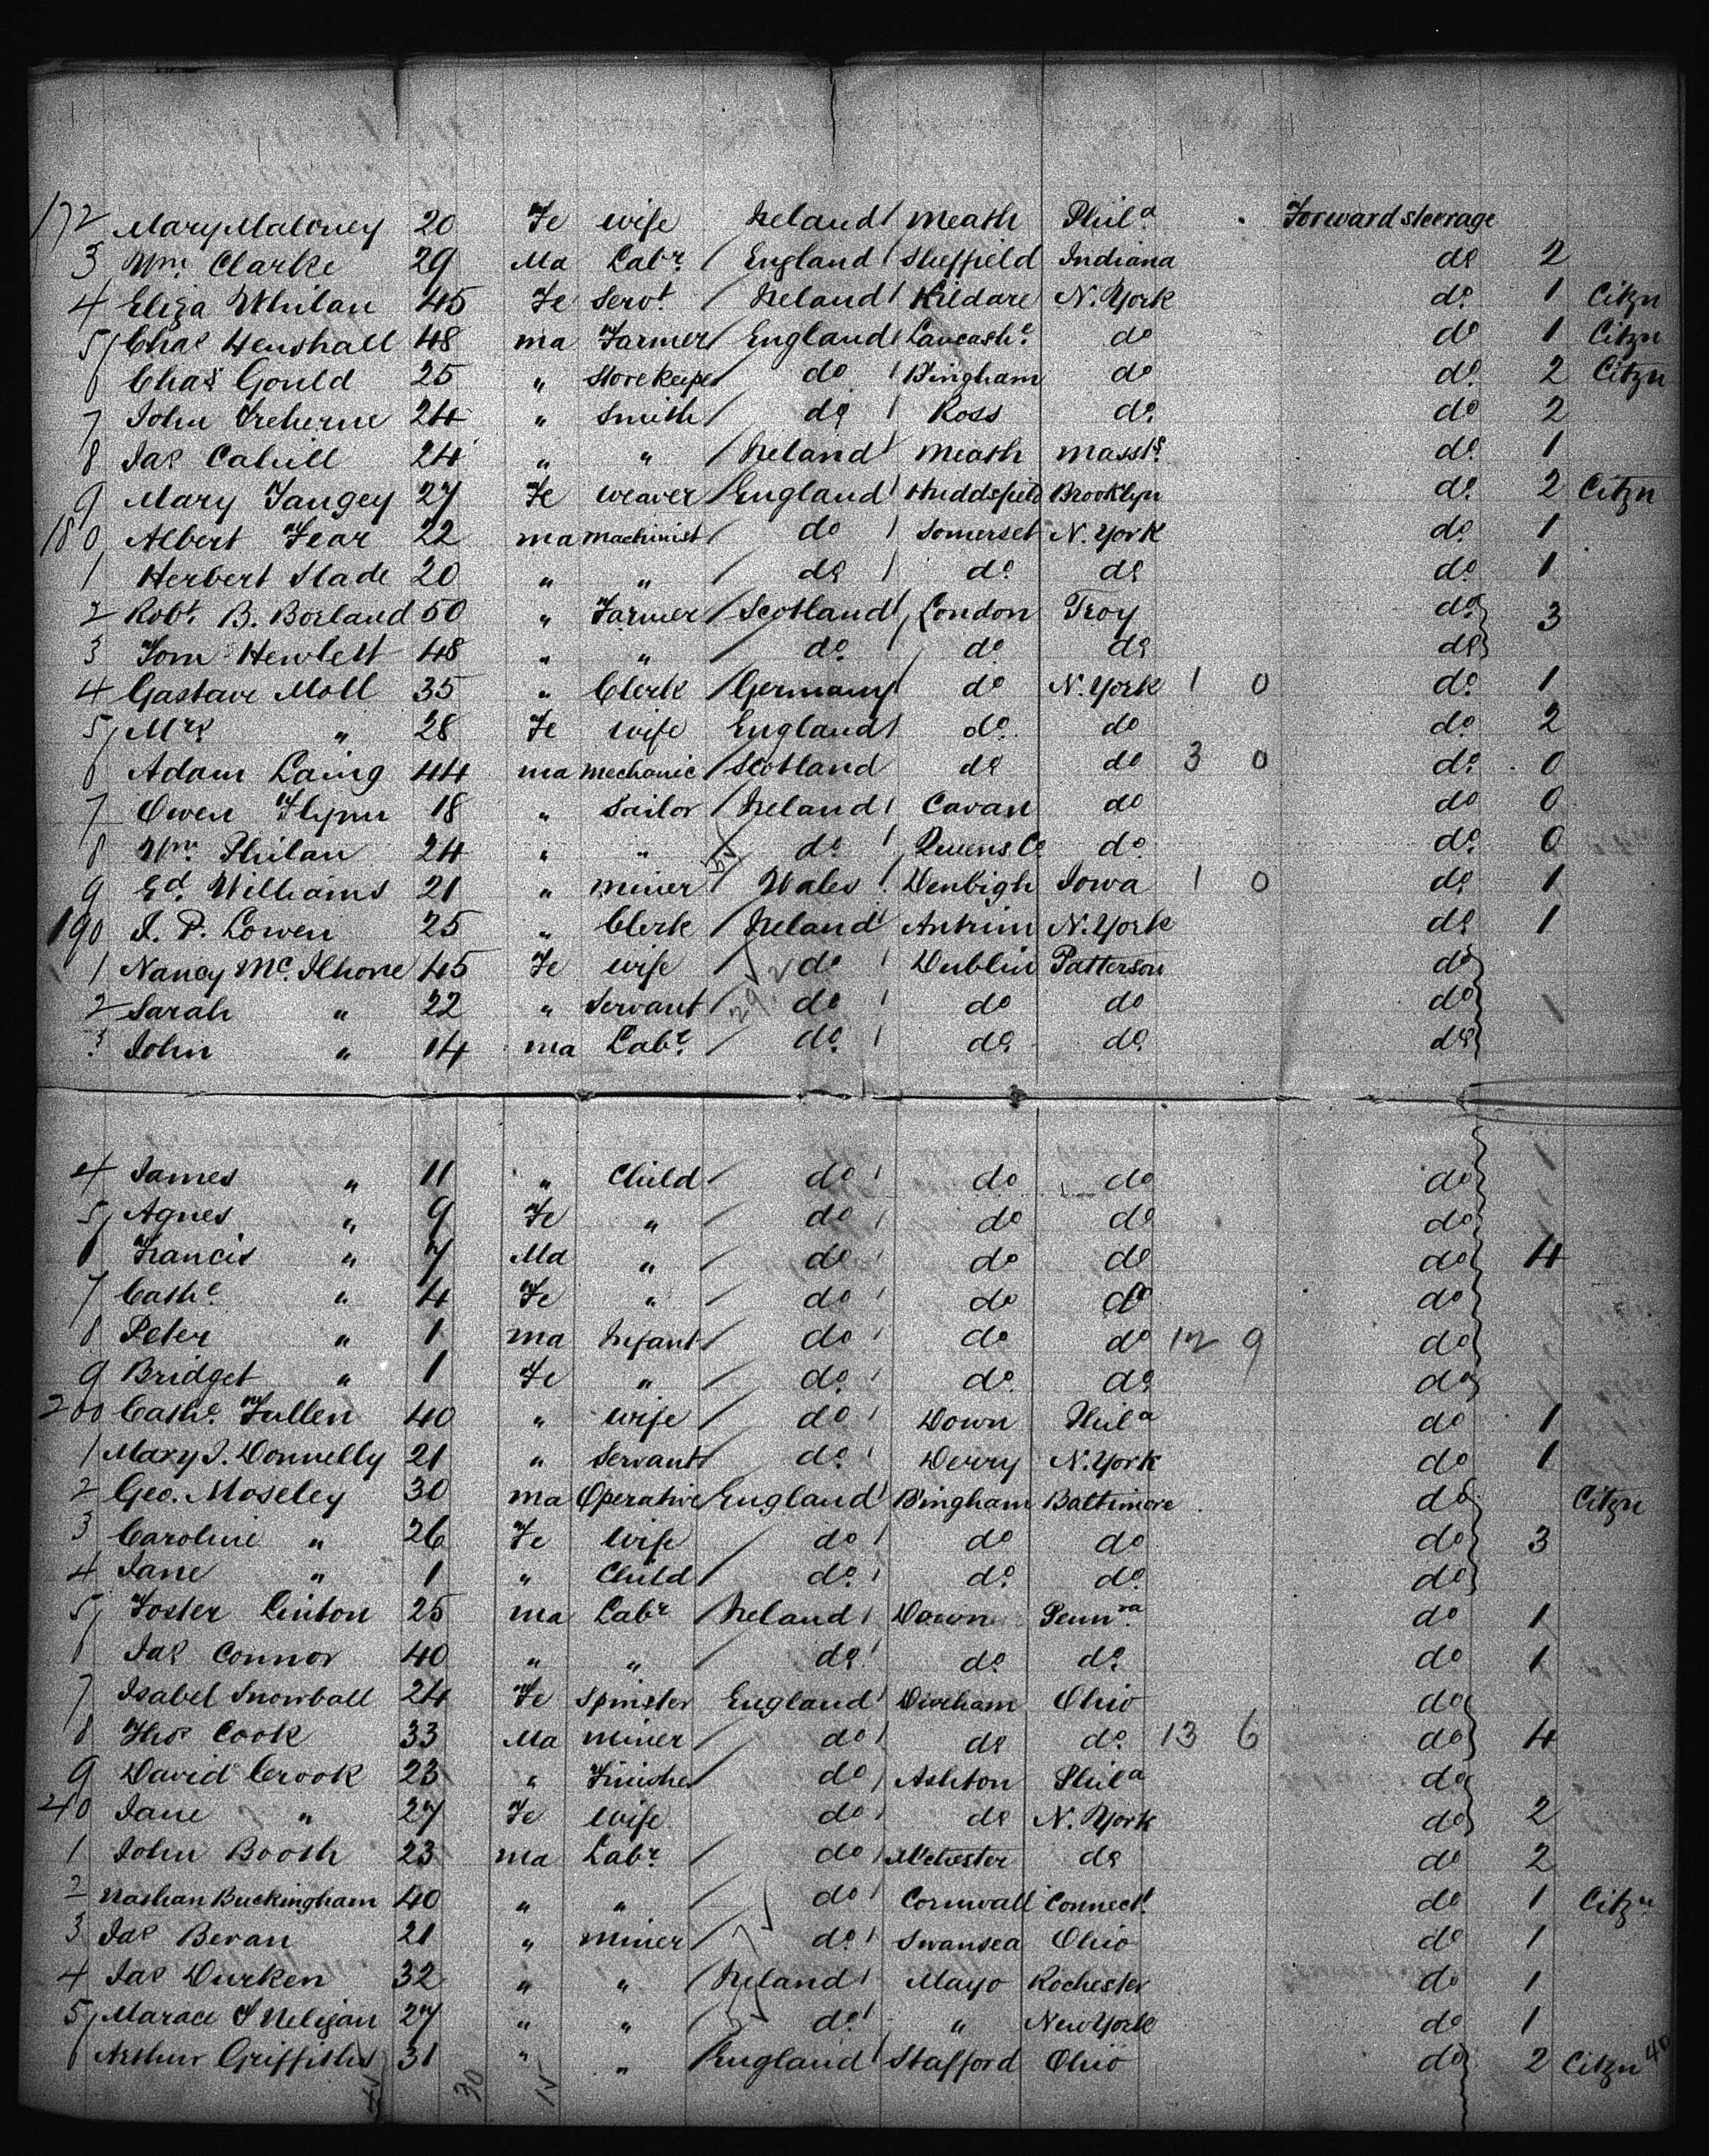 172 Mary Maloney 20 Fe wife Ireland Meath Phila Forward steerage
3 Wm. Clarke 29 Ma Labr. England Sheffield Indiana do 2
4 Eliza Whilan 45 Fe Servt Ireland Kildare N. York do. 1 Citzn
5 Chas Henshall 48 ma Farmer England Lancashe. do do 1 Citzn
6 Chas Gould 25 " Storekeeper do B'ingham do do. 2 Citzn
7 John Treherne 24 " Smith do Ross do. do 2
8 Jas Cahill 24 " " Ireland Meath Massts. do. 1
9 Mary Tangey 27 Fe weaver England Huddsfield Brooklyn do. 2 Citzn
180 Albert Fear 22 ma machinist do Somerset N. York do. 1
1 Herbert Slade 20 " " do do. do do. 1
2 Robt. B. Borland 50 " Farmer Scotland London Troy do. 3
3 Tom Hewlett 48 " " do. do. do do
4 Gastave Moll 35 " Clerk Germany do N. York 1 0 do. 1
5 Mrs " 28 Fe wife England do. do do. 2
6 Adam Laing 44 ma mechanic Scotland do do 3 0 do. 0
7 Owen Flynn 18 " Sailor Ireland Cavan do do 0
8 Wm. Philan 24 " " do. Queens Co. do. do. 0
9 Ed. Williams 21 " miner Wales Denbigh Iowa 1 0 do 1
190 J. P. Lowen 25 " Clerk Ireland Antrim N. York do 1
1 Nancy Mc. Ilhone 45 Fe wife do Dublin Patterson do
2 Sarah " 22 " Servant do do do do
3 John " 14 ma Labr. do. do. do. do
4 James " 11 " Child do do do do
5 Agnes " 9 Fe " do do do do
6 Francis " 7 Ma " do do do do 4
7 Cathe. " 4 Fe " do do do do
8 Peter " 1 ma Infant do do do 12 9 do
9 Bridget " 1 Fe " do. do. do do
200 Cathe. Fullen 40 " wife do Down Phila do 1
1 Mary J. Donnelly 21 " Servant do. Derry N. York do 1
2 Geo. Moseley 30 ma Operative England B'ingham Baltimore do Citzn
3 Caroline " 26 Fe Wife do do do do 3
4 Jane " 1 " Child do. do. do. do
5 Foster Linton 25 ma Labr Ireland Down Pennva. do 1
6 Jas Connor 40 " " do. do. do. do 1
7 Isabel Snowball 24 Fe Spinster England Durham Ohio do
8 Thos Cook 33 Ma miner do do do. 13 6 do 4
9 David Crook 23 " Finisher do Ashton Phila do
210 Jane " 27 Fe Wife do do N. York do 2
1 John Booth 23 ma Labr. do M'chester do do 2
2 Nathan Buckingham 40 " " do Cornwall Connect. do 1 Citzn
3 Jas Bevan 21 " miner do. Swansea Ohio do 1
4 Jas Durken 32 " " Ireland Mayo Rochester do 1
5 27 " " do. " New York do 1
6 Arthur Griffiths 31 " " England Stafford Ohio do 2 Citzn 40
30